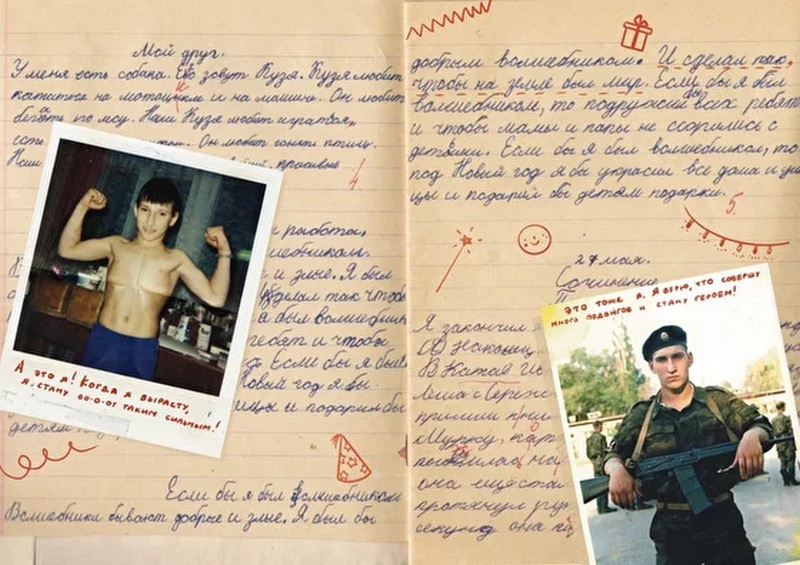 Мой друг.
У меня есть собака. Его зовут Кузя. Кузя любит
кататься на мотоцикле и на машине. Он любит
бегать по лесу. Наш Кузя любит играться,
есть Он любит гонять птицу.
Наш красивые
4
и работа,
волшебником.
и злые. Я был
сделал так чтобы
я был волшебник
ребят и чтобы
Если бы я был
Новый год я бы
ицы и подарил бы
детям
А это я! Когда я вырасту,
я стану оо-о-от таким сильным!
Если бы я был волшебником
Волшебники бывают добрые и злые. Я был бы
добрым волшебником. И сделал так,
чтобы на земле был мир. Если бы я был
волшебником, то подружил всех ребят
и чтобы мамы и папы не ссорились с
детьми. Если бы я был волшебником, то
под Новый год я бы украсил все дома и ули
цы и подарил бы детям подарки.
5.
27 мая.
Сочинение
П
Я закончил
Наконец
В Китае
Леша с Сереж
пришли
Мурку,
она
протянул
секунд она
Это тоже я. Я верю, что совершу
много подвигов и стану героем!